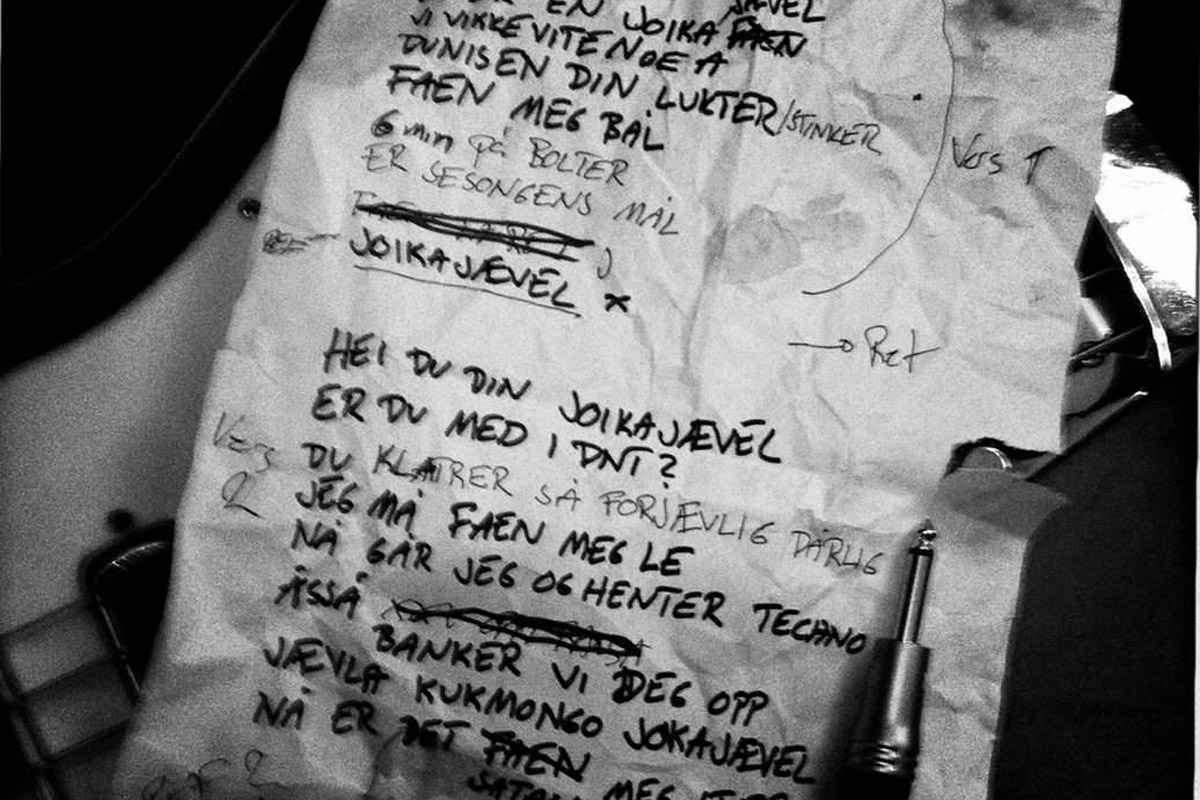 EN JOIKA FAEN JÆVEL
VI VIKKE VITE NOE A
DUNISEN DIN LUKTER/STINKER
FAEN MEG BAL
6 min på BOLTER
ER SESONGENS MÅL
Vers 1
JOIKAJÆVEL *
→ Ref
HEI DU DIN JOIKAJÆVEL
ER DU MED I DNT?
Vers 2
DU KLATRER SÅ FORJÆVLIG DÅRLIG
JEG MÅ FAEN MEG LE
NÅ GÅR JEG OG HENTER TECHNO
ÅSSÅ
BANKER VI DEG OPP
JÆVLA KUKMONGO JOKAJÆVEL
NÅ ER DET FAEN MEG
SATAN
REF 2